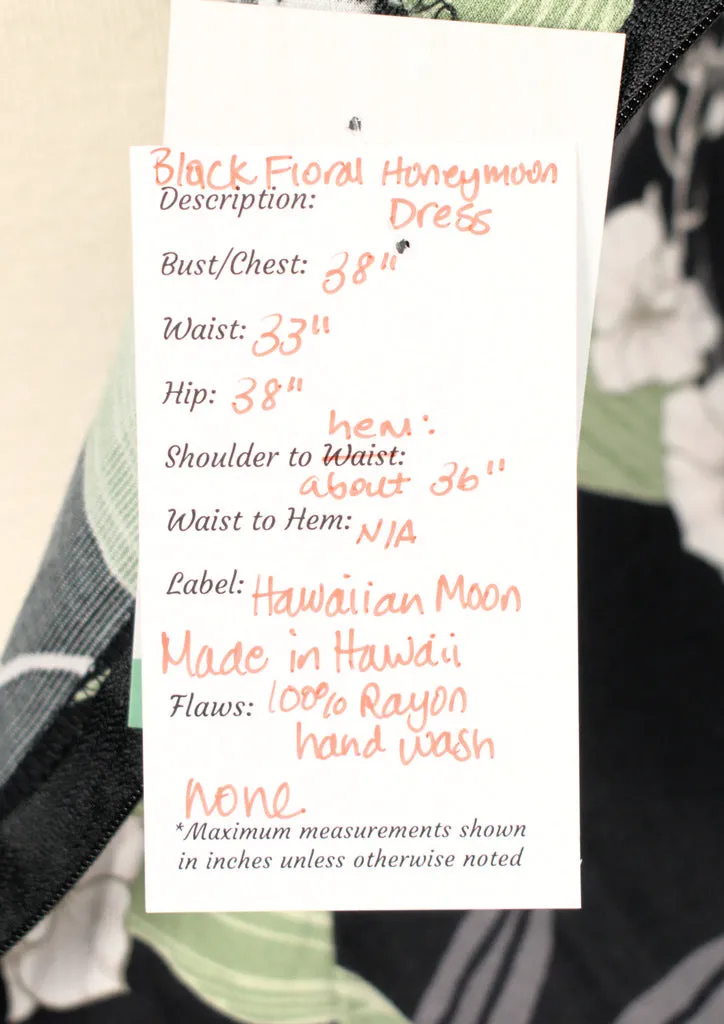 Black Floral Honeymoon
Description: Dress
Bust/Chest: 38"
Waist: 33"
Hip: 38"
hem:
Shoulder to Waist:
about 36"
Waist to Hem: N/A
Label: Hawaiian Moon
Made in Hawaii
Flaws: 100% Rayon
hand wash
none
*Maximum measurements shown
in inches unless otherwise noted